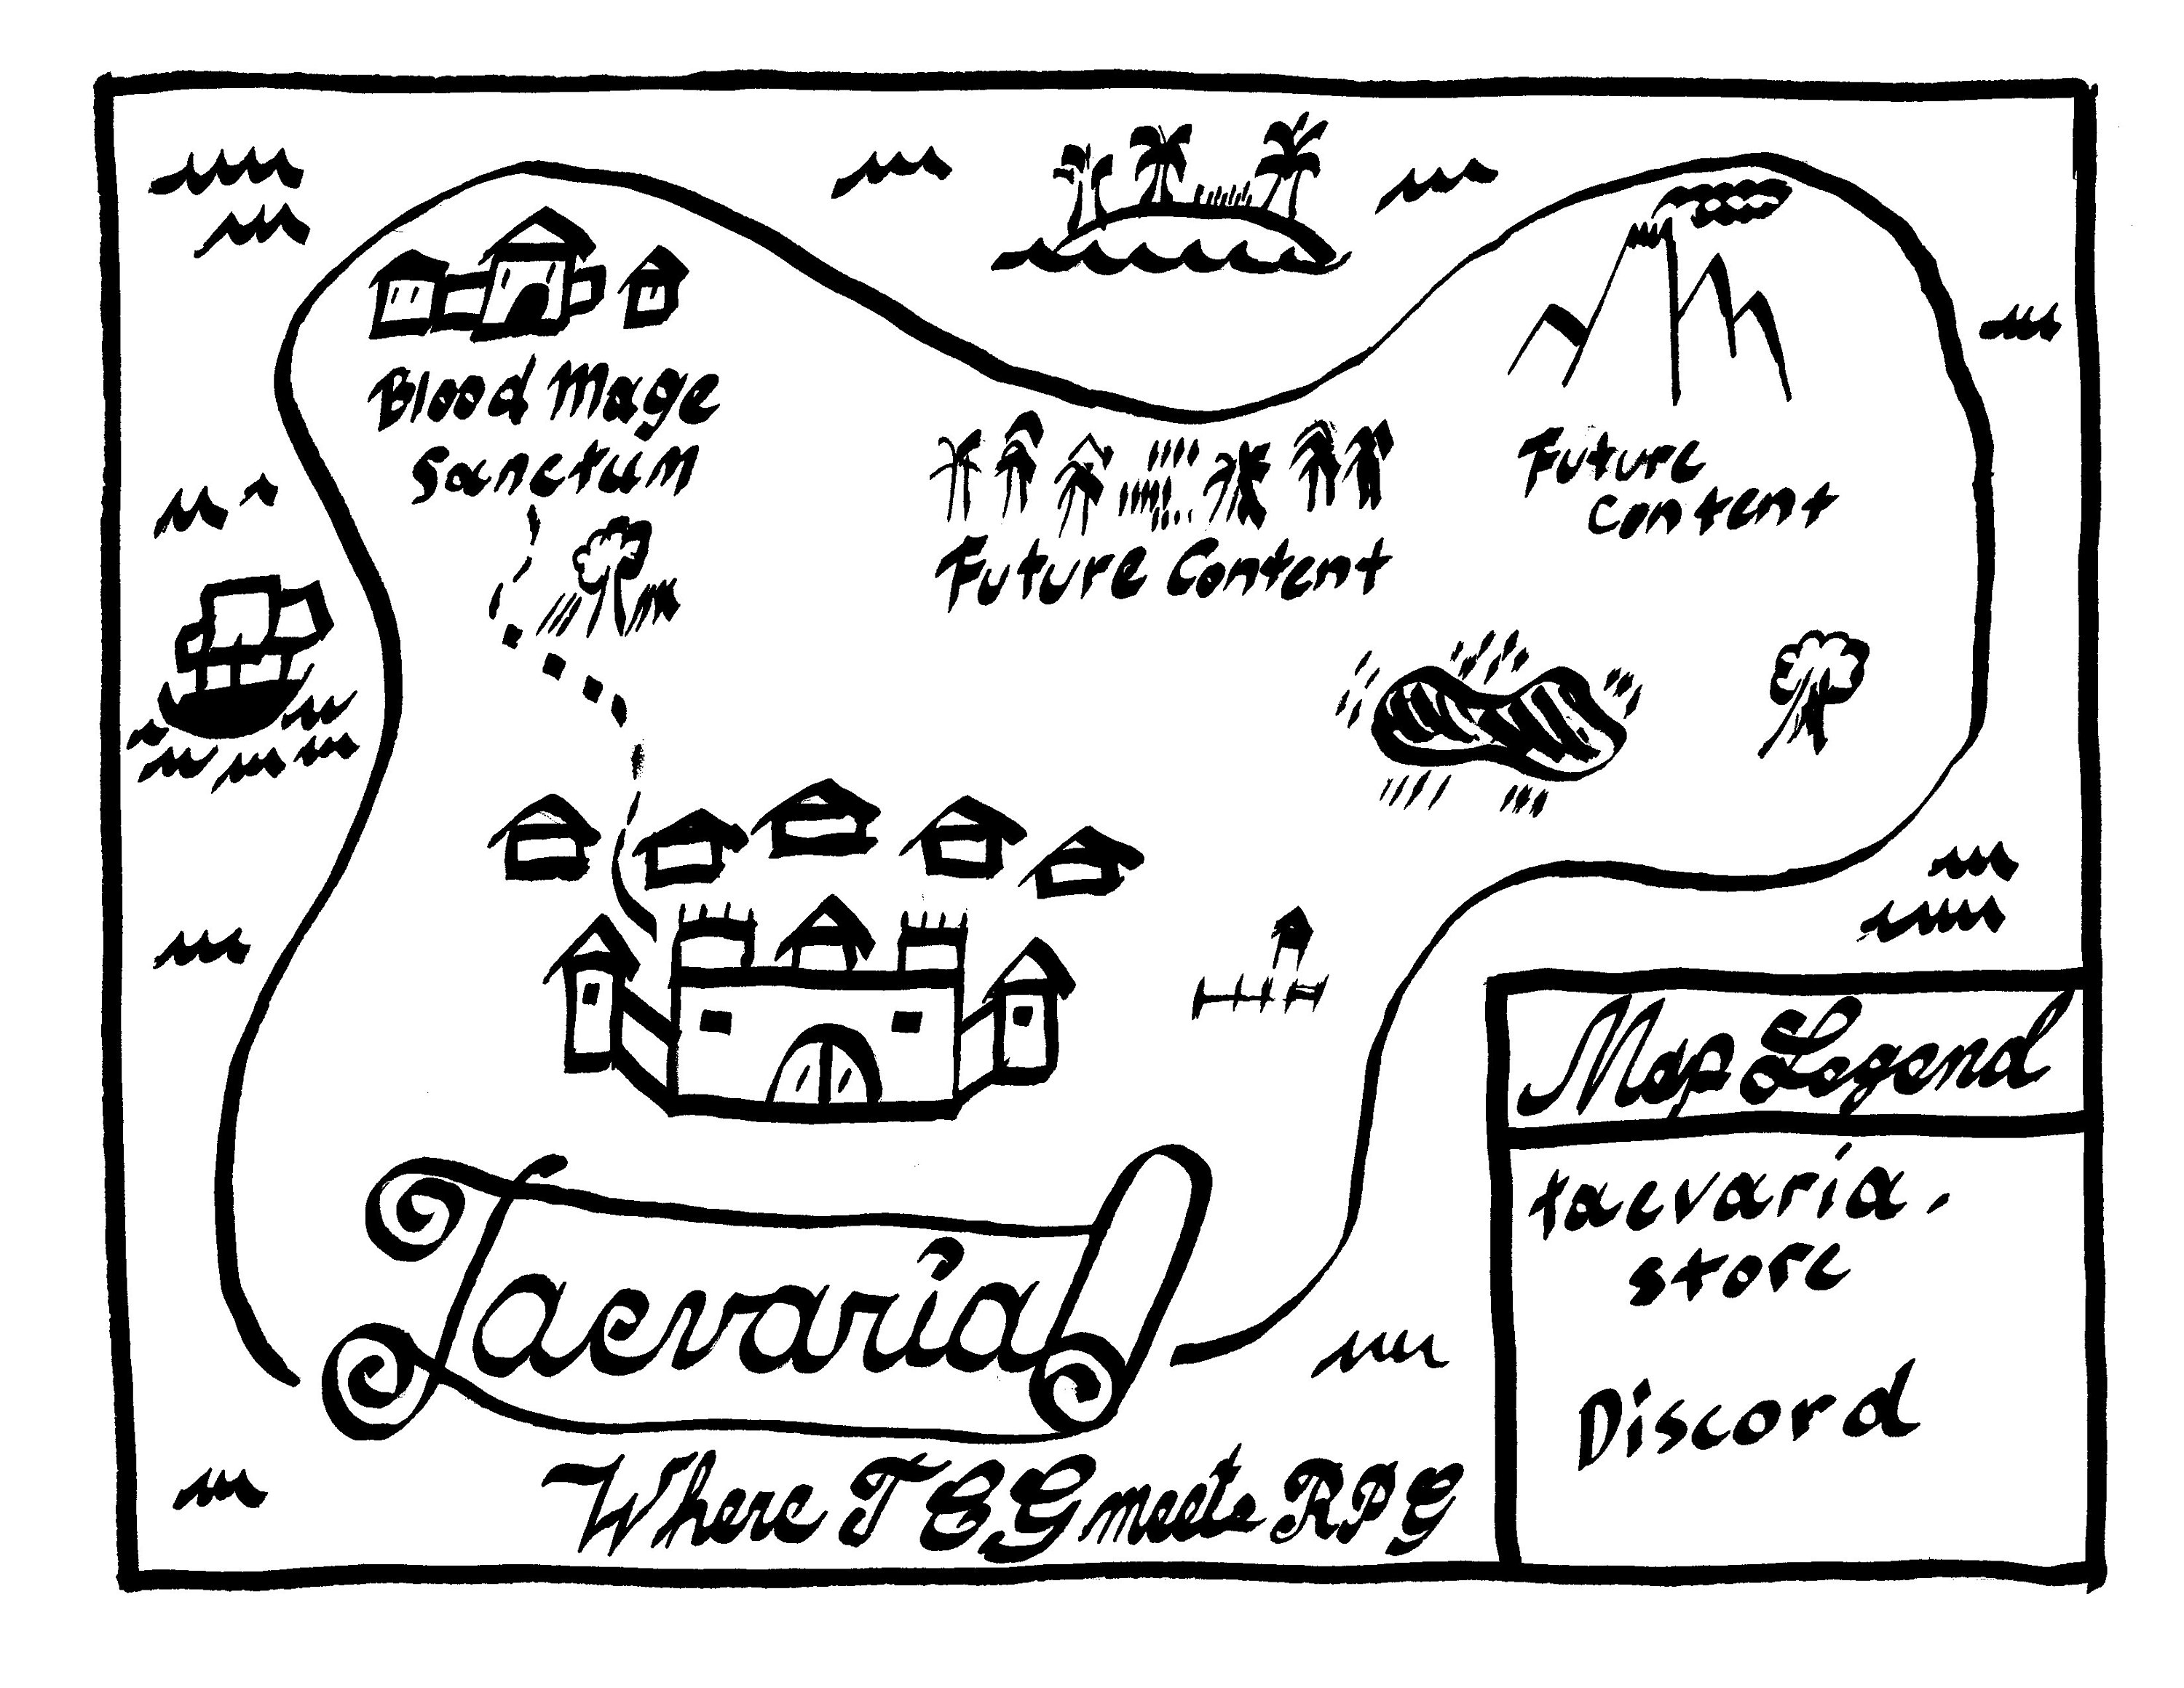 Blood Mage
Sanctum
Future
Content
Future Content
Map Legend
taevaria.
store
Discord
Taevaria
Where TCG meets RPG